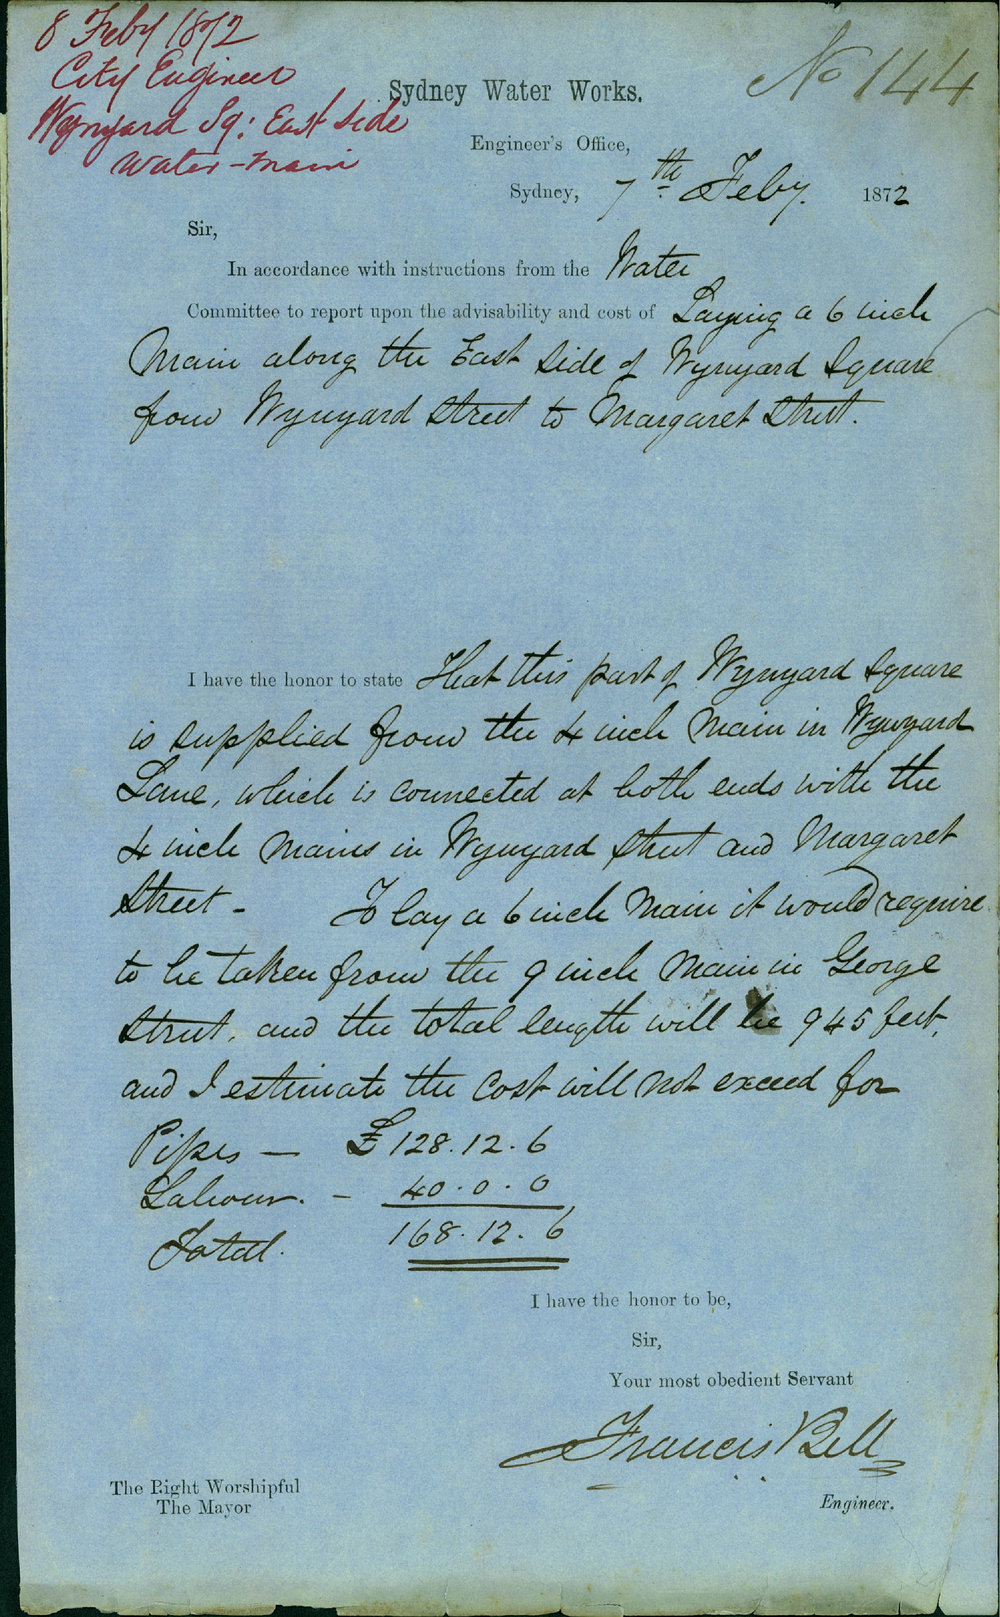 8 Feby 1872
City Engineer
Wynyard Sq: East Side
Water-main
No 144
Sydney Water Works.
Engineer's Office,
Sydney, 7th Feby. 1872
Sir,
In accordance with instructions from the Water
Committee to report upon the advisability and cost of Laying a 6 inch
Main along the East Side of Wynyard Square
from Wynyard Street to Margaret Street.
I have the honor to state that this part of Wynyard Square
is supplied from the 4 inch Main in Wynyard
Lane, which is connected at both ends with the
4 inch Mains in Wynyard Street and Margaret
Street - To lay a 6 inch Main it would require
to be taken from the 9 inch Main in George
Street, and the total length will be 945 feet,
and I estimate the Cost will not exceed for
Pipes — £128.12.6
Labour. - 40.0.0
Total. 168.12.6
I have the honor to be,
Sir,
Your most obedient Servant
Francis Bell
Engineer.
The Right Worshipful
The Mayor